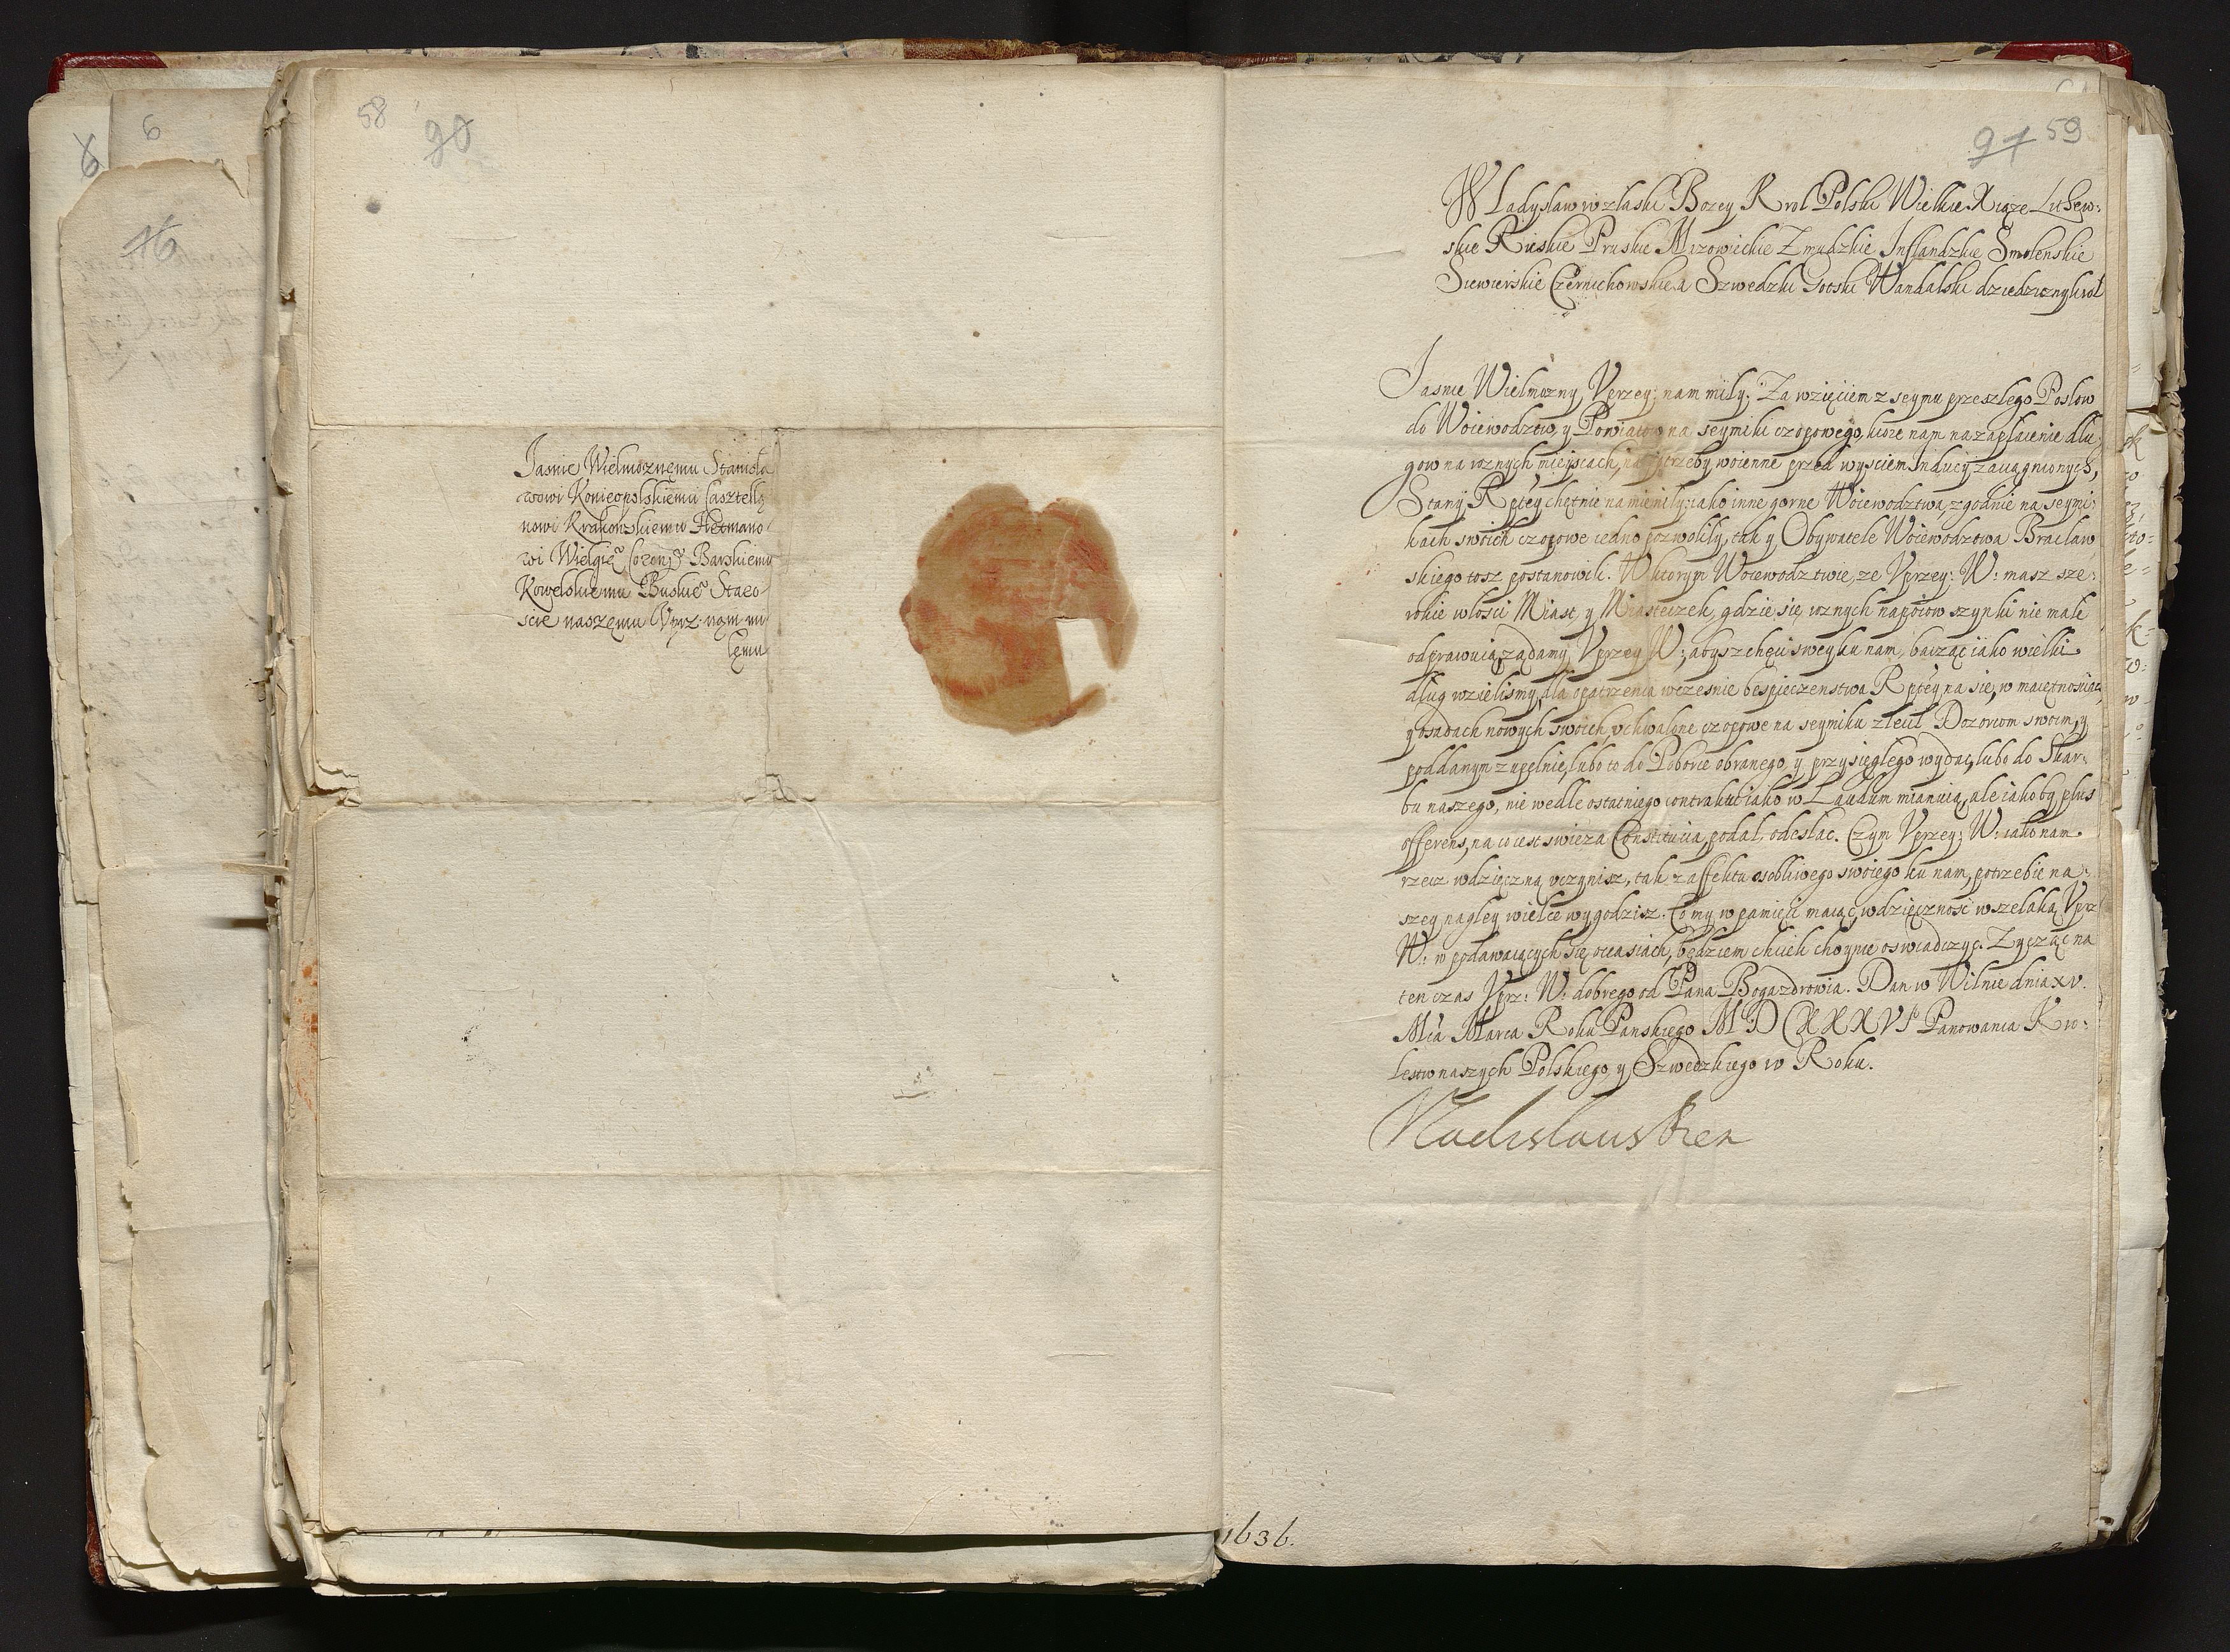 58
90
6
6
16
Jasnie Wielmoznemu Stanisła
wowi Koniecpolskiemu Casztella
nowi Krakowskiemu Hetmano
wi Wielgie° Coron° Barskiemu
Kowelskiemu Buskie° Staro
scie naszemu Uprz: nam mi
łemu
97 59
Wladysław z łaski Bozey Krol Polski Wielkie Xiąze Lithew:
skie Ruskie Pruskie Mazowieckie Zmudzkie Inflandzkie Smolenskie
Siewierskie Czernichowskie a Szwedzki Gotski Wandalski dziedziczny krol
Jasnie Wielmozny, Vprzey: nam miły. Za wzięciem z seymu przeszłego Posłow
do Woiewodztw, y Powiatow na seymiki czopowego, ktore nam na zapłacenie dłu
gow na roznych mieyscach, na potrzeby woienne przed wysciem Inducij zaciągnionych,
Stany Rptey chętnie namieniły: iako inne gorne Woiewodztwa, zgodnie na seymi:
kach swoich czopowe iedno pozwoliły, tak y Obywatele Woiewodztwa Bracław
skiego tosz postanowili. W ktorym Woiewodztwie, ze Vprzey: W: masz sze:
rokie włosci Miast, y Miasteczek, gdzie się roznych napoiow szynki nie małe
odprawuią, ządamy Vprzey W:, abys z chęci swey ku nam, bacząc iako wielki
dług wzielismy, dla opatrzenia wczesnie bespieczenstwa Rptey na sie, w maiętnosciac
y osadach nowych swoich, vchwalone czopowe na seymiku zlecił Dozorcom swoim, y
poddanym zupełnie, lubo to do Poborce obranego, y przysięgłego wydac, lubo do Skar:
bu naszego, nie wedle ostatniego contraktu iako w Laudum mianuią, ale iako by plus
offerens, na co iest swieza Constitucia, podał, odesłac. Czym Vprzey: W: iako nam
rzecz wdzięczną vczynisz, tak z affektu osobliwego swoiego ku nam, potrzebie na:
szey nagłey wielce wygodzisz. Co my w pamięci maiąc, wdzięcznosc wszelaką Vprz
W: w podawaiących się occasiach, będziem chcieli choynie oswiadczyc. Zycząc na
ten czas Vprz: W: dobrego od Pana Boga zdrowia. Dan w Wilnie dnia XV.
Mca Marca Roku Panskiego MDCXXXVI Panowania Kro:
lestw naszych Polskiego, y Szwedzkiego w Roku.
Vladislaus Rex
1636.